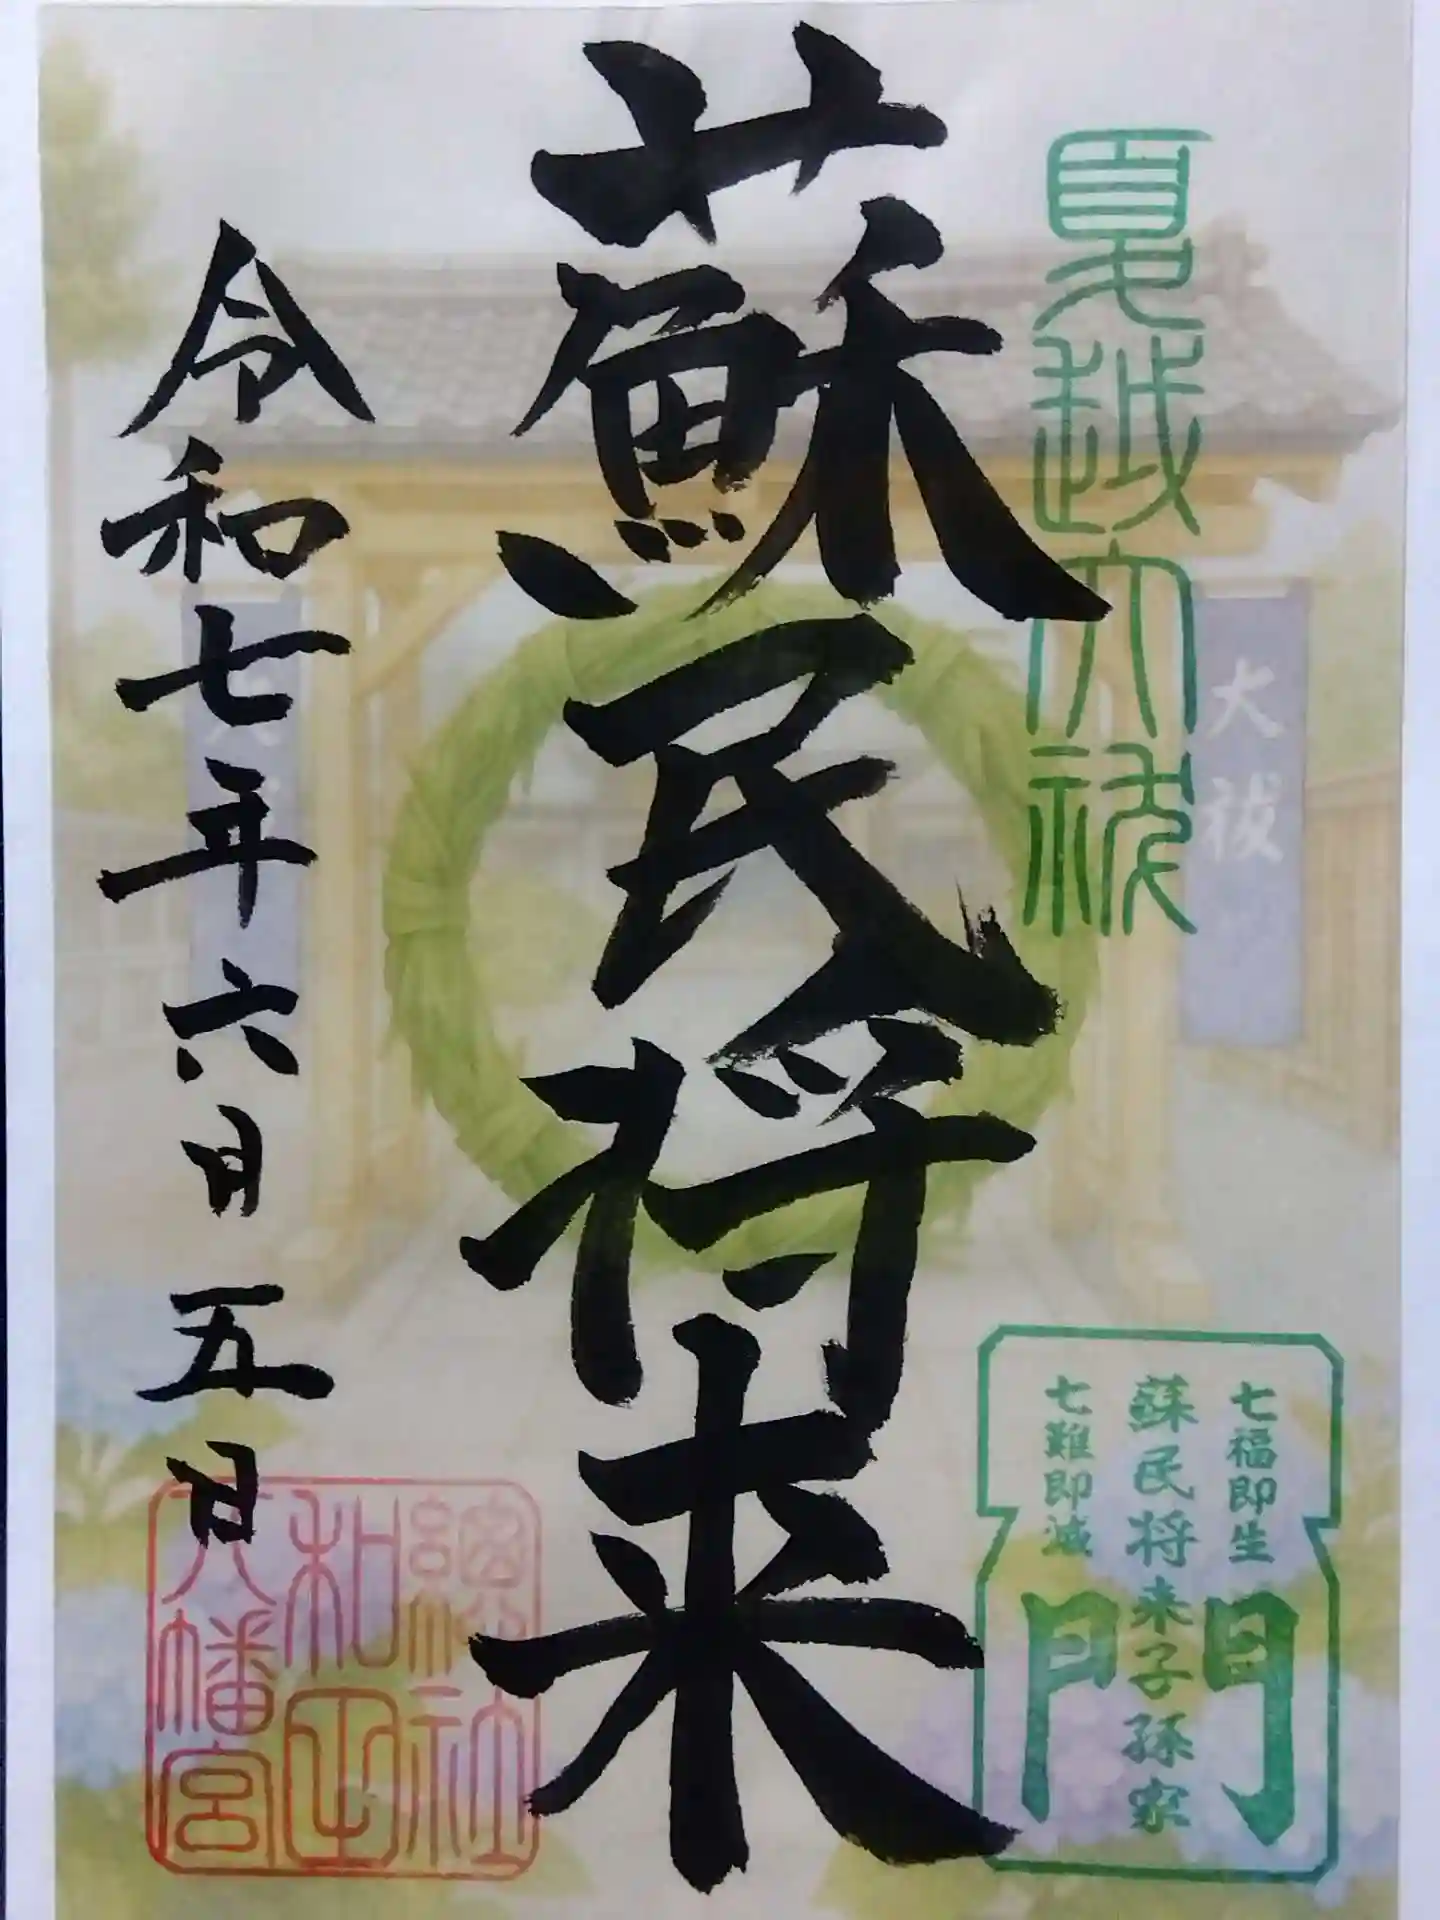 夏越大祓
大祓
七福即生
蘇民将来子孫家
七難即滅
門
蘇民将来
令和七年六月五日
總社
和田
八幡宮